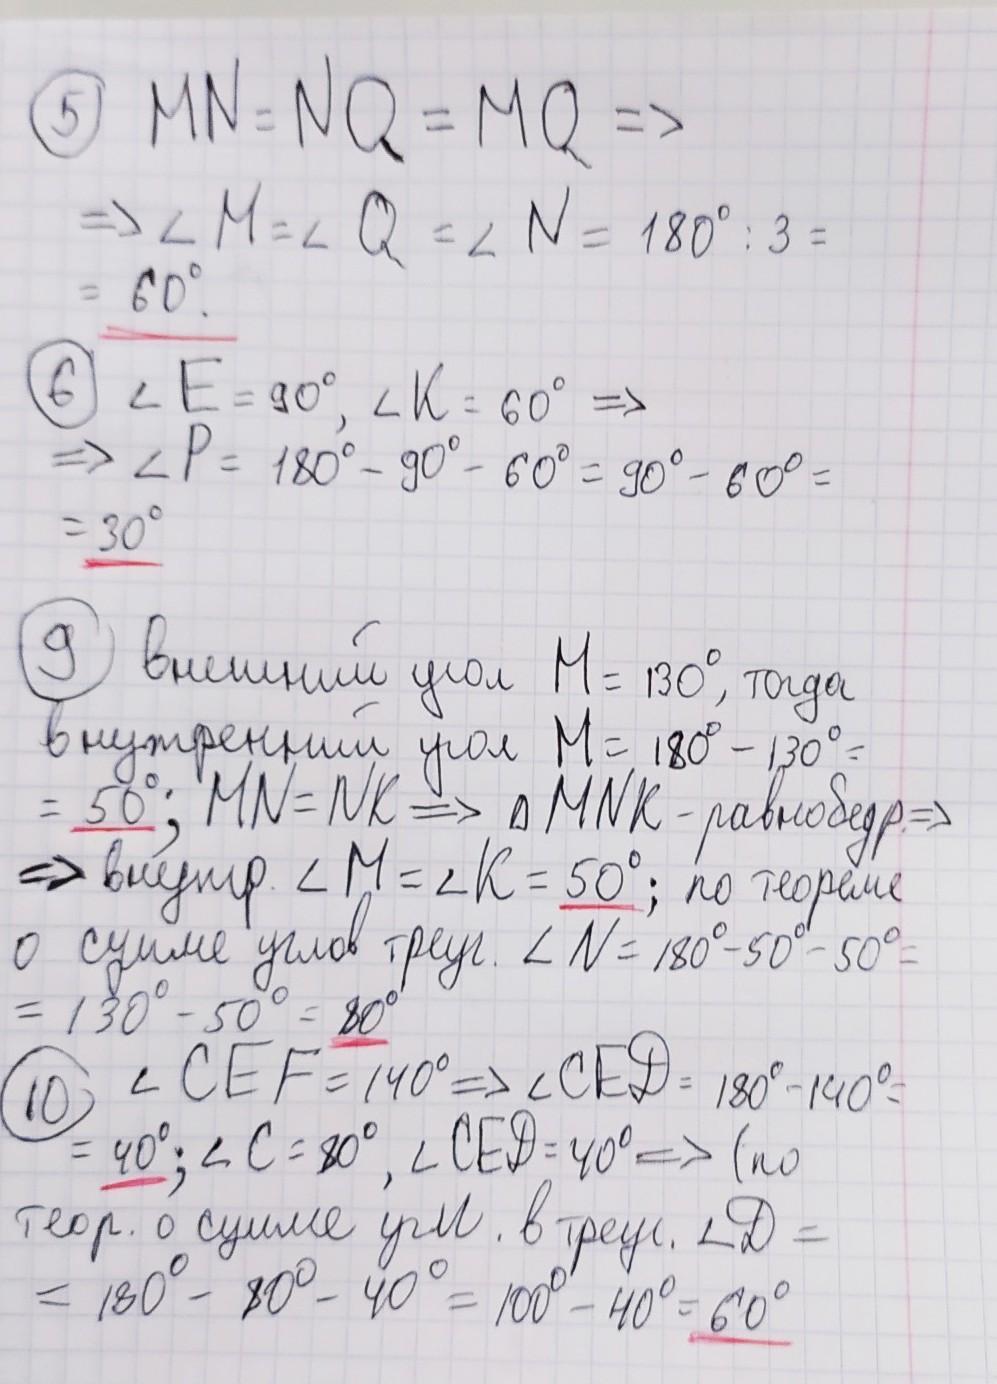 5 MN = NQ = MQ =>
=> ∠ M = ∠ Q = ∠ N = 180° : 3 =
= 60°.
6 ∠ E = 90°, ∠ K = 60° =>
=> ∠ P = 180° - 90° - 60° = 90° - 60° =
= 30°
9 внешний угол M = 130°, тогда
внутренний угол M = 180° - 130° =
= 50°; MN = NK => △ MNK - равнобедр. =>
=> внутр. ∠ M = ∠ K = 50°; по теореме
о сумме углов треуг. ∠ N = 180° - 50° - 50° =
= 130° - 50° = 80°
10 ∠ CEF = 140° => ∠ CED = 180° - 140° =
= 40°; ∠ C = 80°, ∠ CED = 40° => (по
теор. о сумме угл. в треуг. ∠ D =
= 180° - 80° - 40° = 100° - 40° = 60°